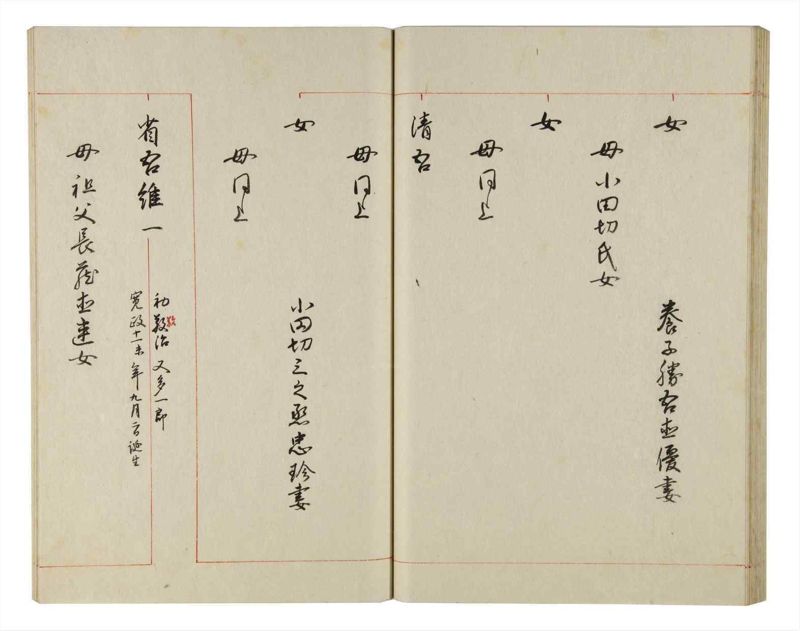 女
養子勝吾直優妻
母小田切氏女
女
母同上
清吾
母同上
女
小田切三之烝忠珍妻
母同上
省吾維一
初 治 又多一郎
寛政十一未年九月 日誕生
母祖父長蔵直連女